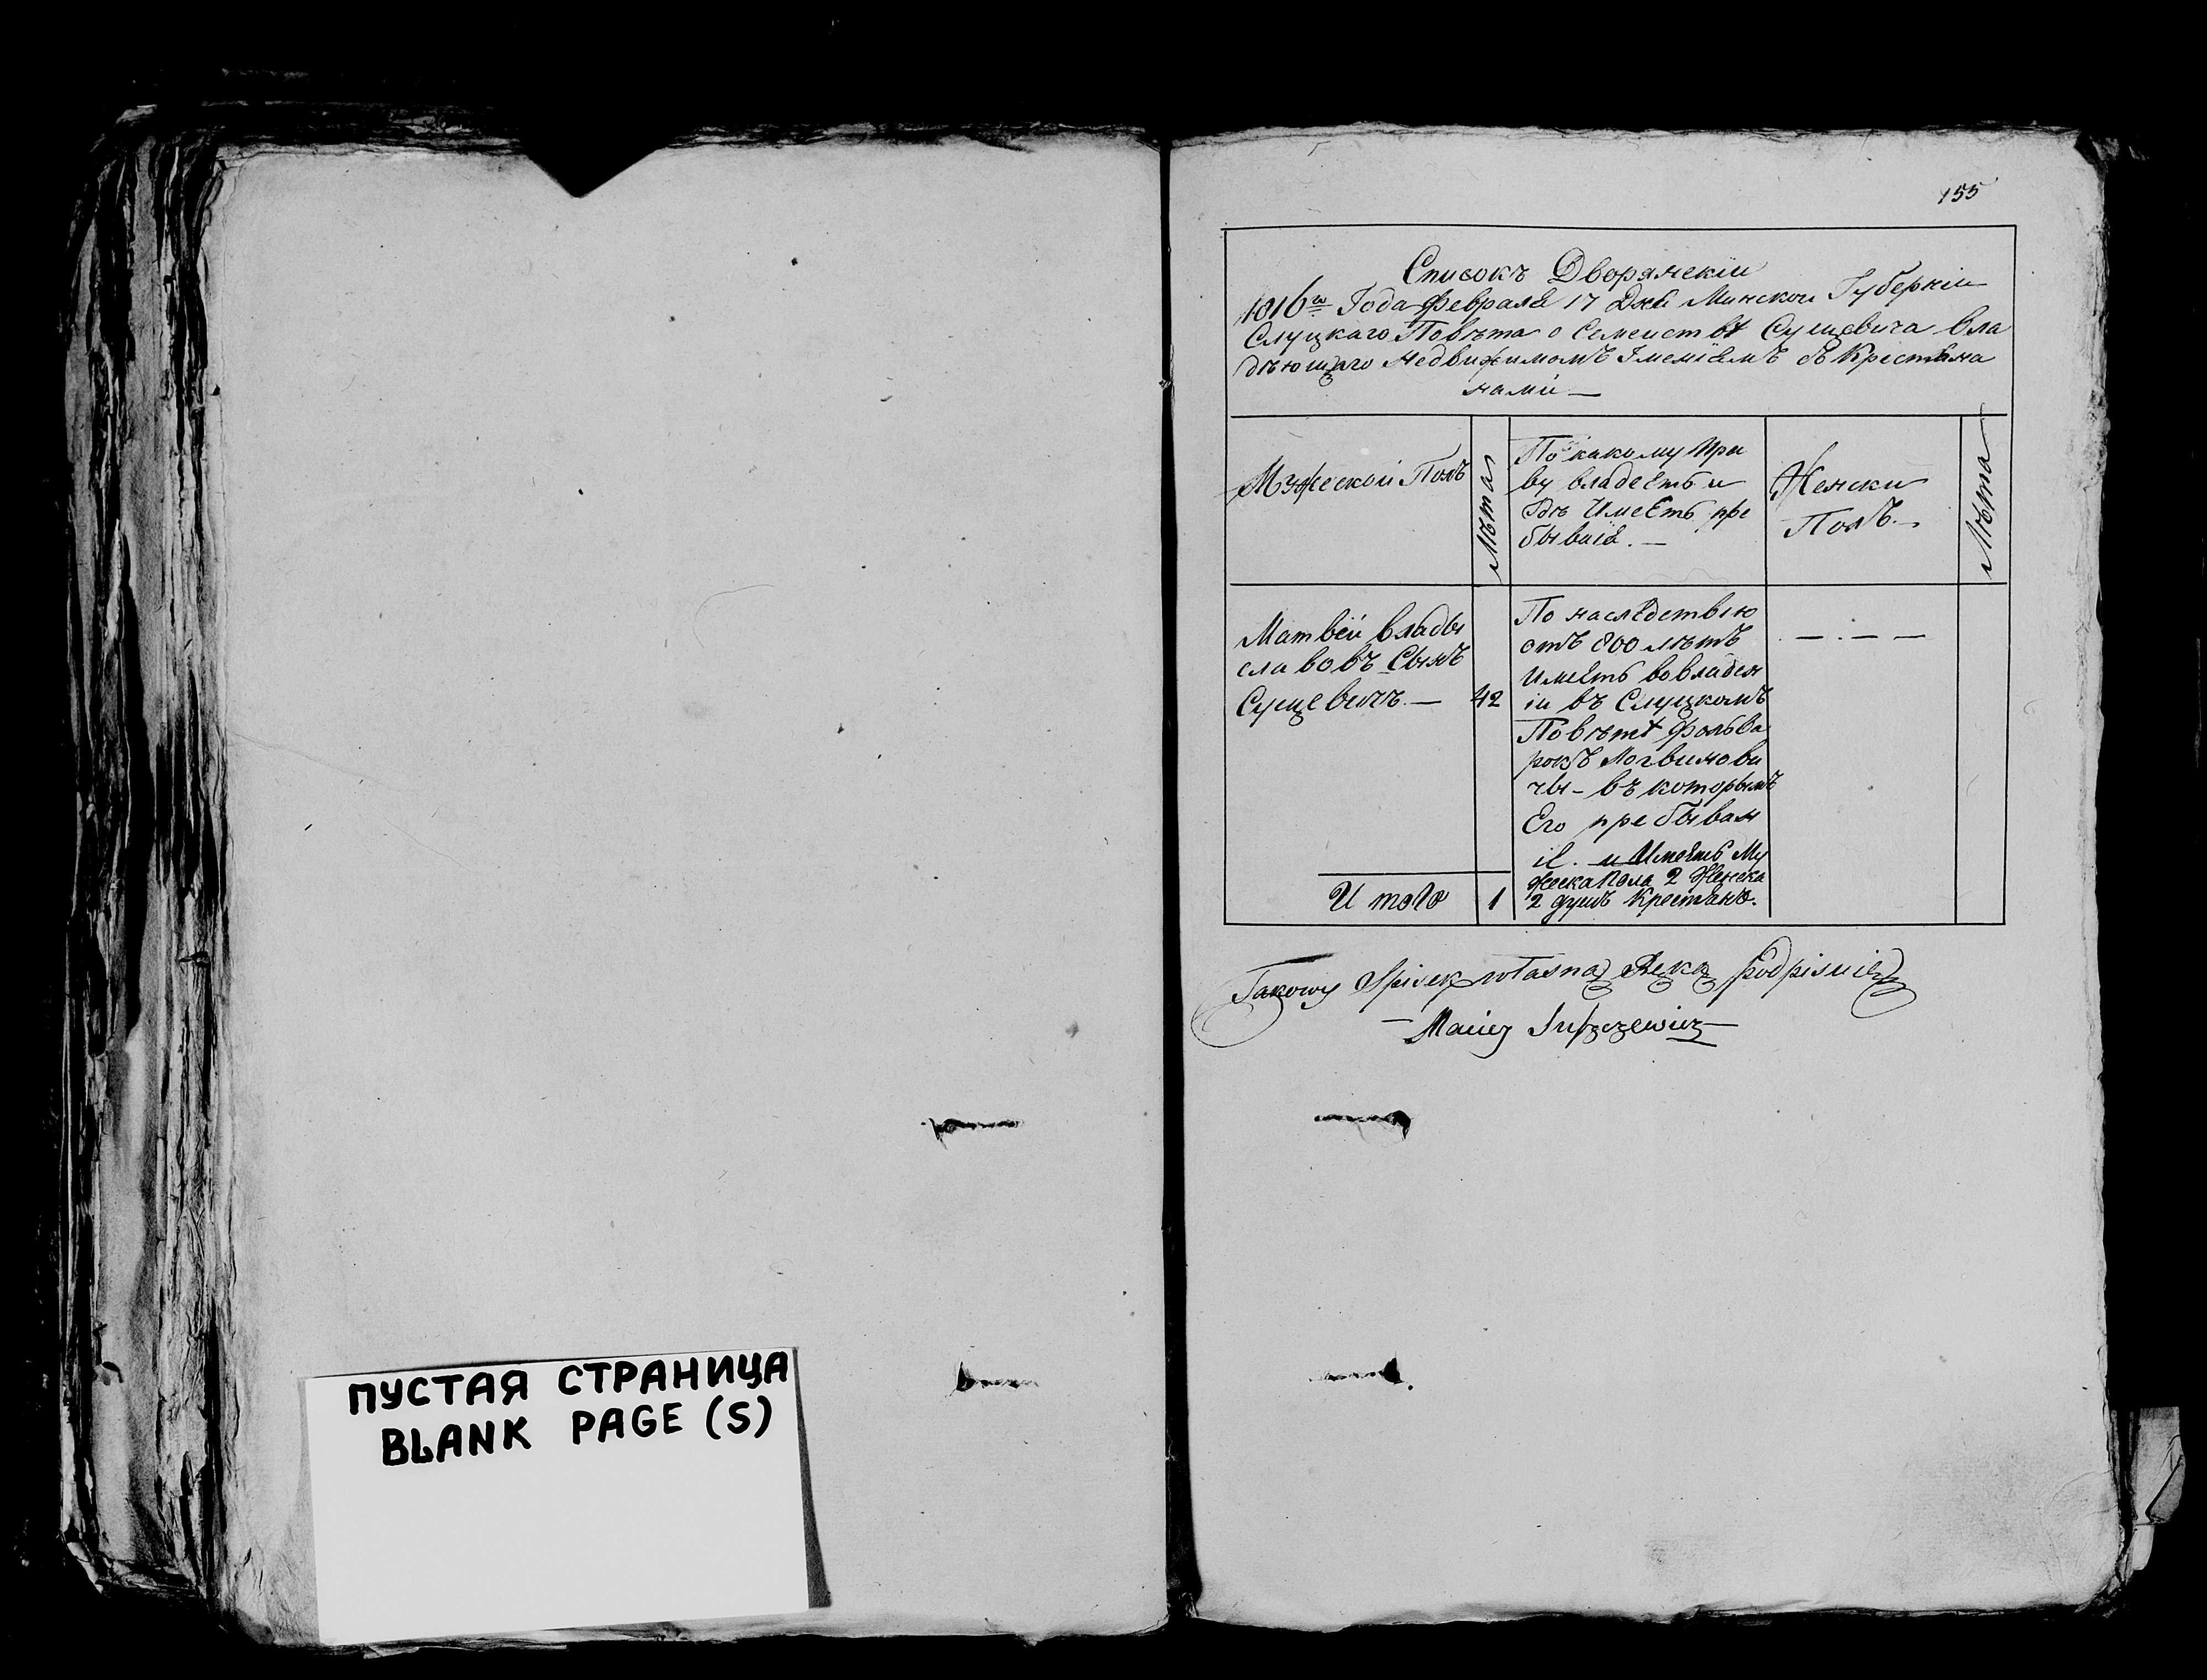 ПУСТАЯ СТРАНИЦА
BLANK PAGE (S)
155
Списокъ Дворянскіи
1816го Года Февраля 17 Дня Минскои Губерніи
Слуцкаго Повѣта о Семеиствѣ Сущевича вла
дѣющаго недвижимомъ Іменіемъ съ Крестьяна
нами —
Мужескои Полъ
Лѣта
По какому пра
ву владеетъ и
гдѣ Имеетъ пре
быванія. —
Женски
Полъ. —
Лѣта
Матвѣй Влады
славовъ Сынъ
Сущевичъ. — 42
По наслѣдствію
отъ 800 лѣтъ
имѣетъ во владен
іи въ Слуцкомъ
Повѣтѣ Фольва
рокъ Логвинови
чы - въ которымъ
Его пребыван
іе. и Имѣетъ Му
жеска пола 2 Женска
2 душъ Крестянъ.
— . — —
И того 1
Takowy Spisek własną Ręką podpisuię
— Maciey Suszczewicz —